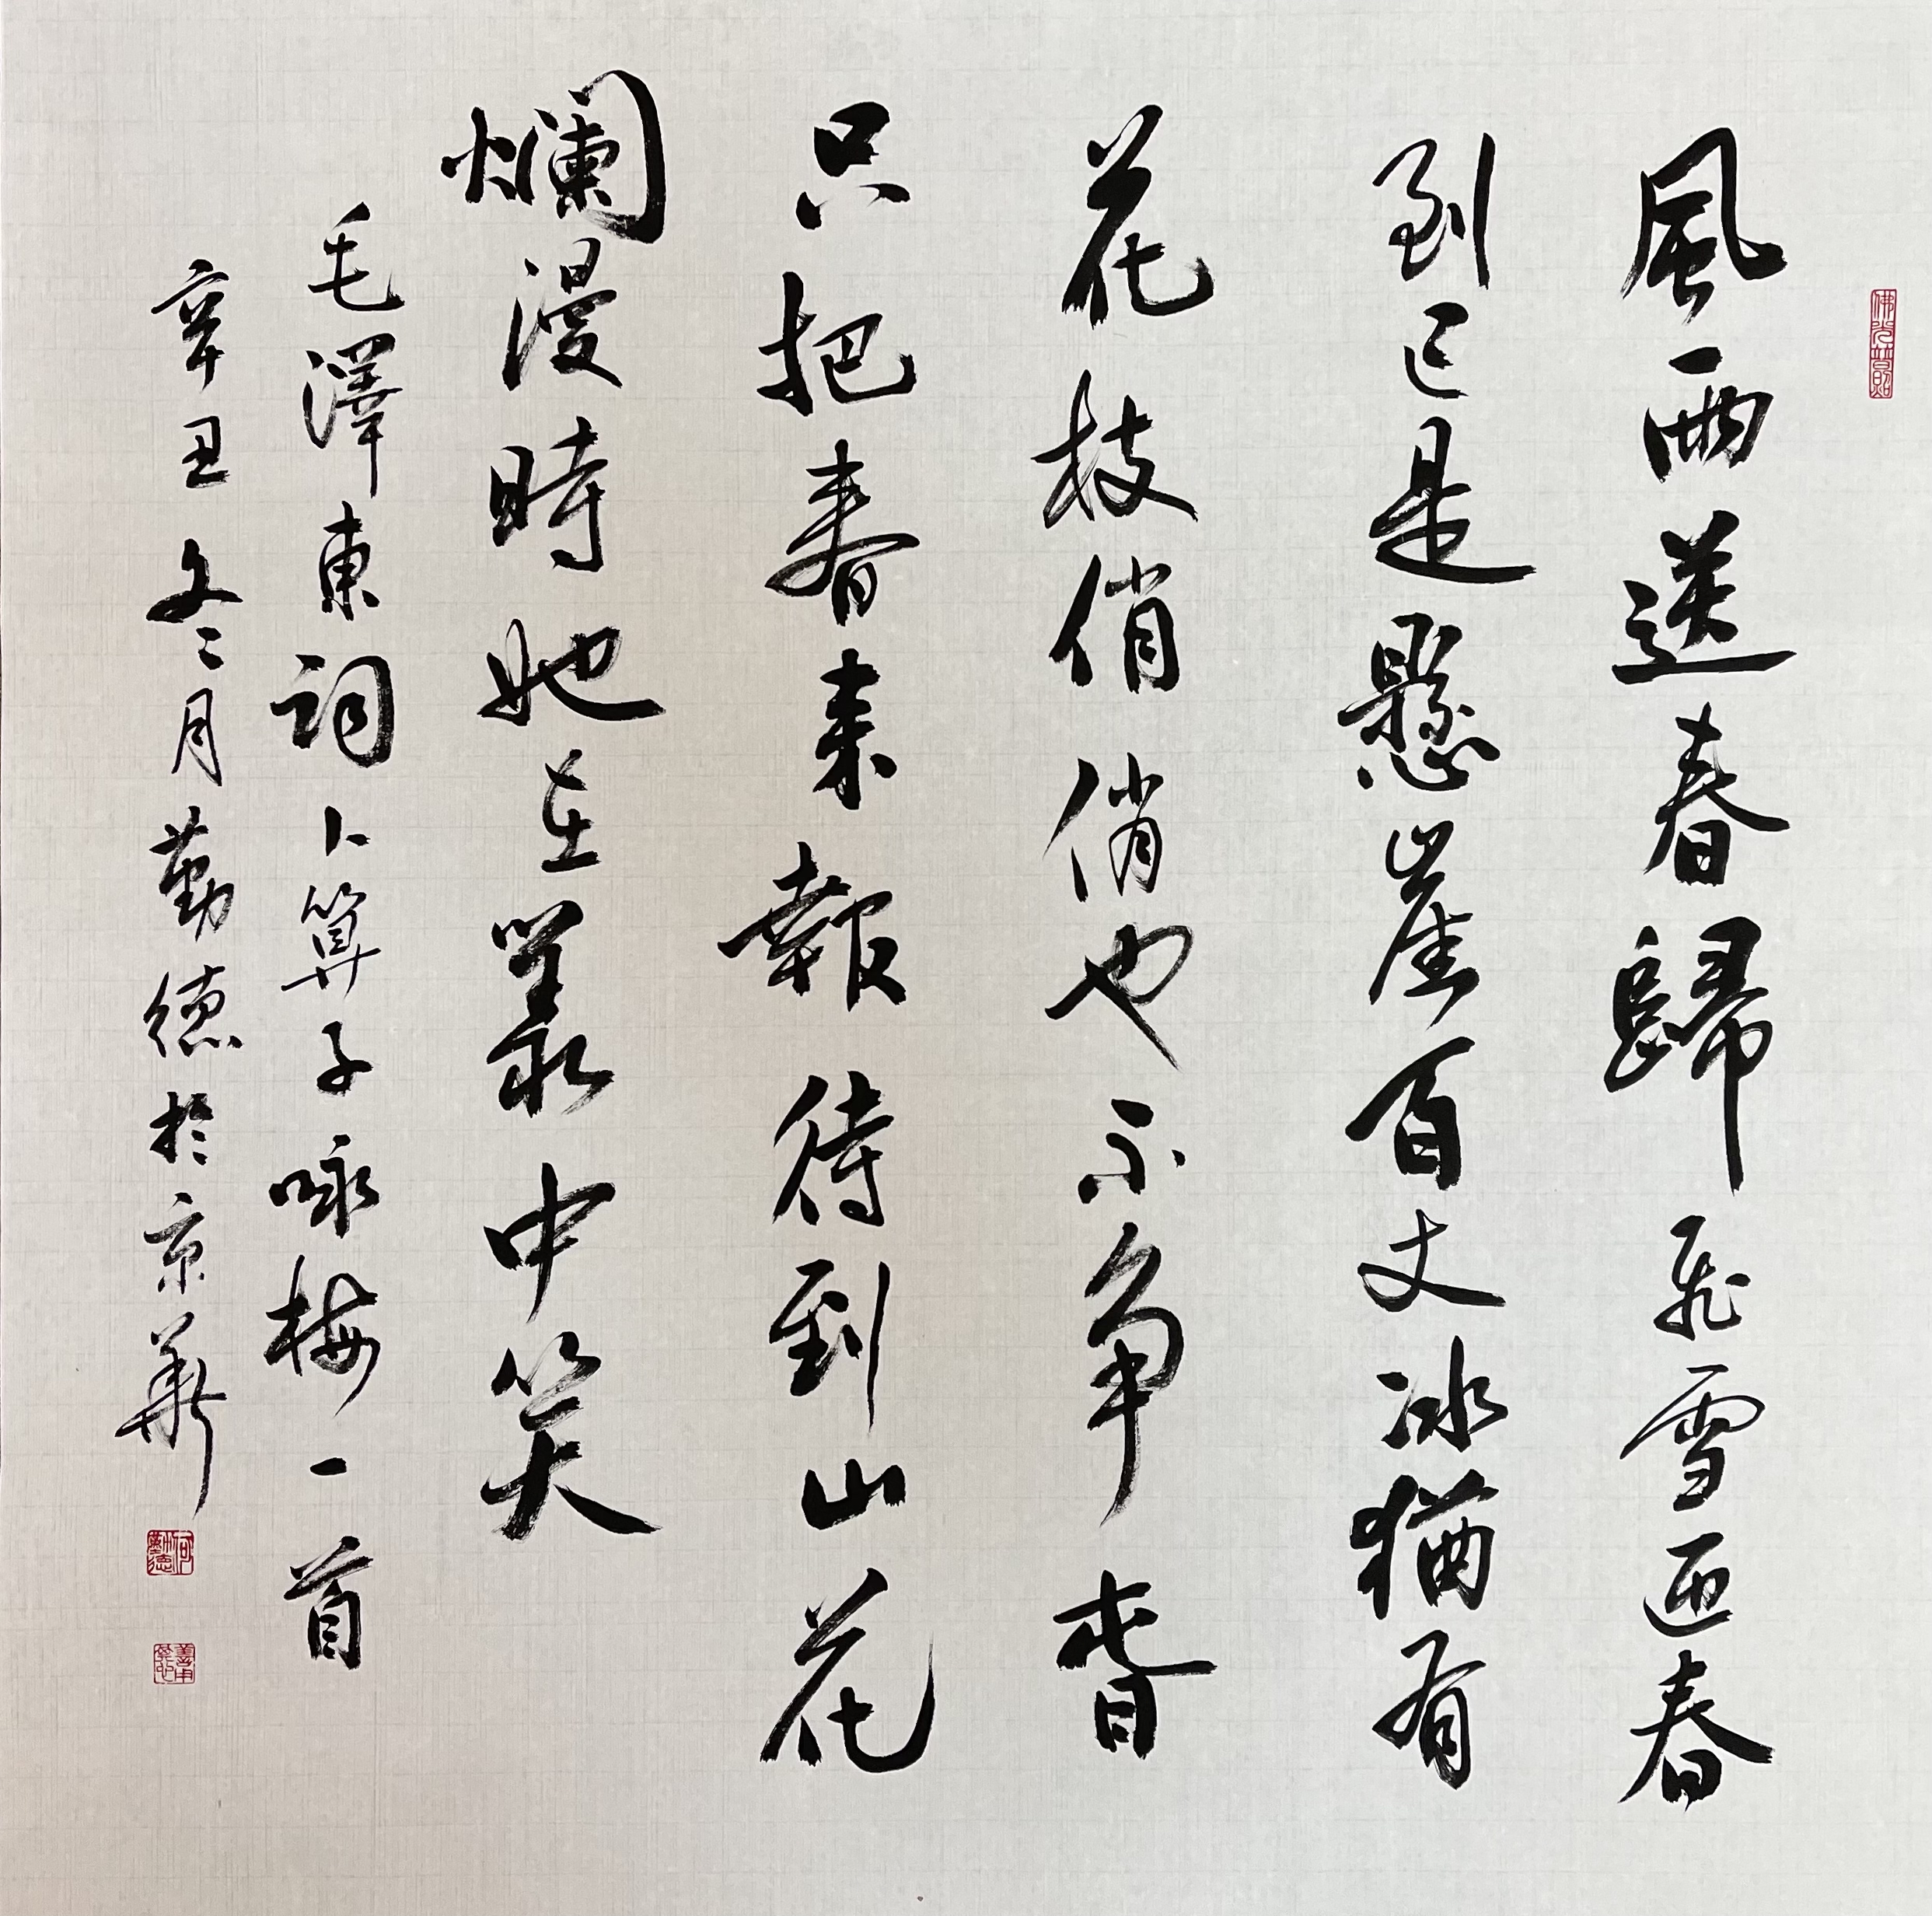 佛光普照
風雨送春歸飛雪迎春
到已是懸崖百丈冰猶有
花枝俏俏也不争春
只把春来報待到山花
爛漫時她在叢中笑
毛澤東詞卜算子咏梅一首
辛丑冬月勤德於京華
何勤德